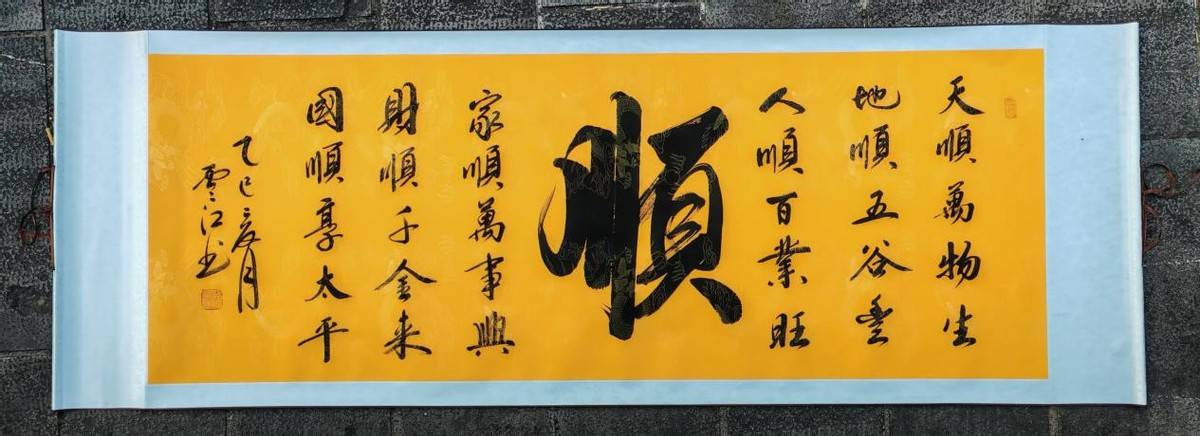 天順萬物生
地順五谷豐
人順百業旺
順
家順萬事興
財順千金来
國順享太平
乙巳夏月
雲江书